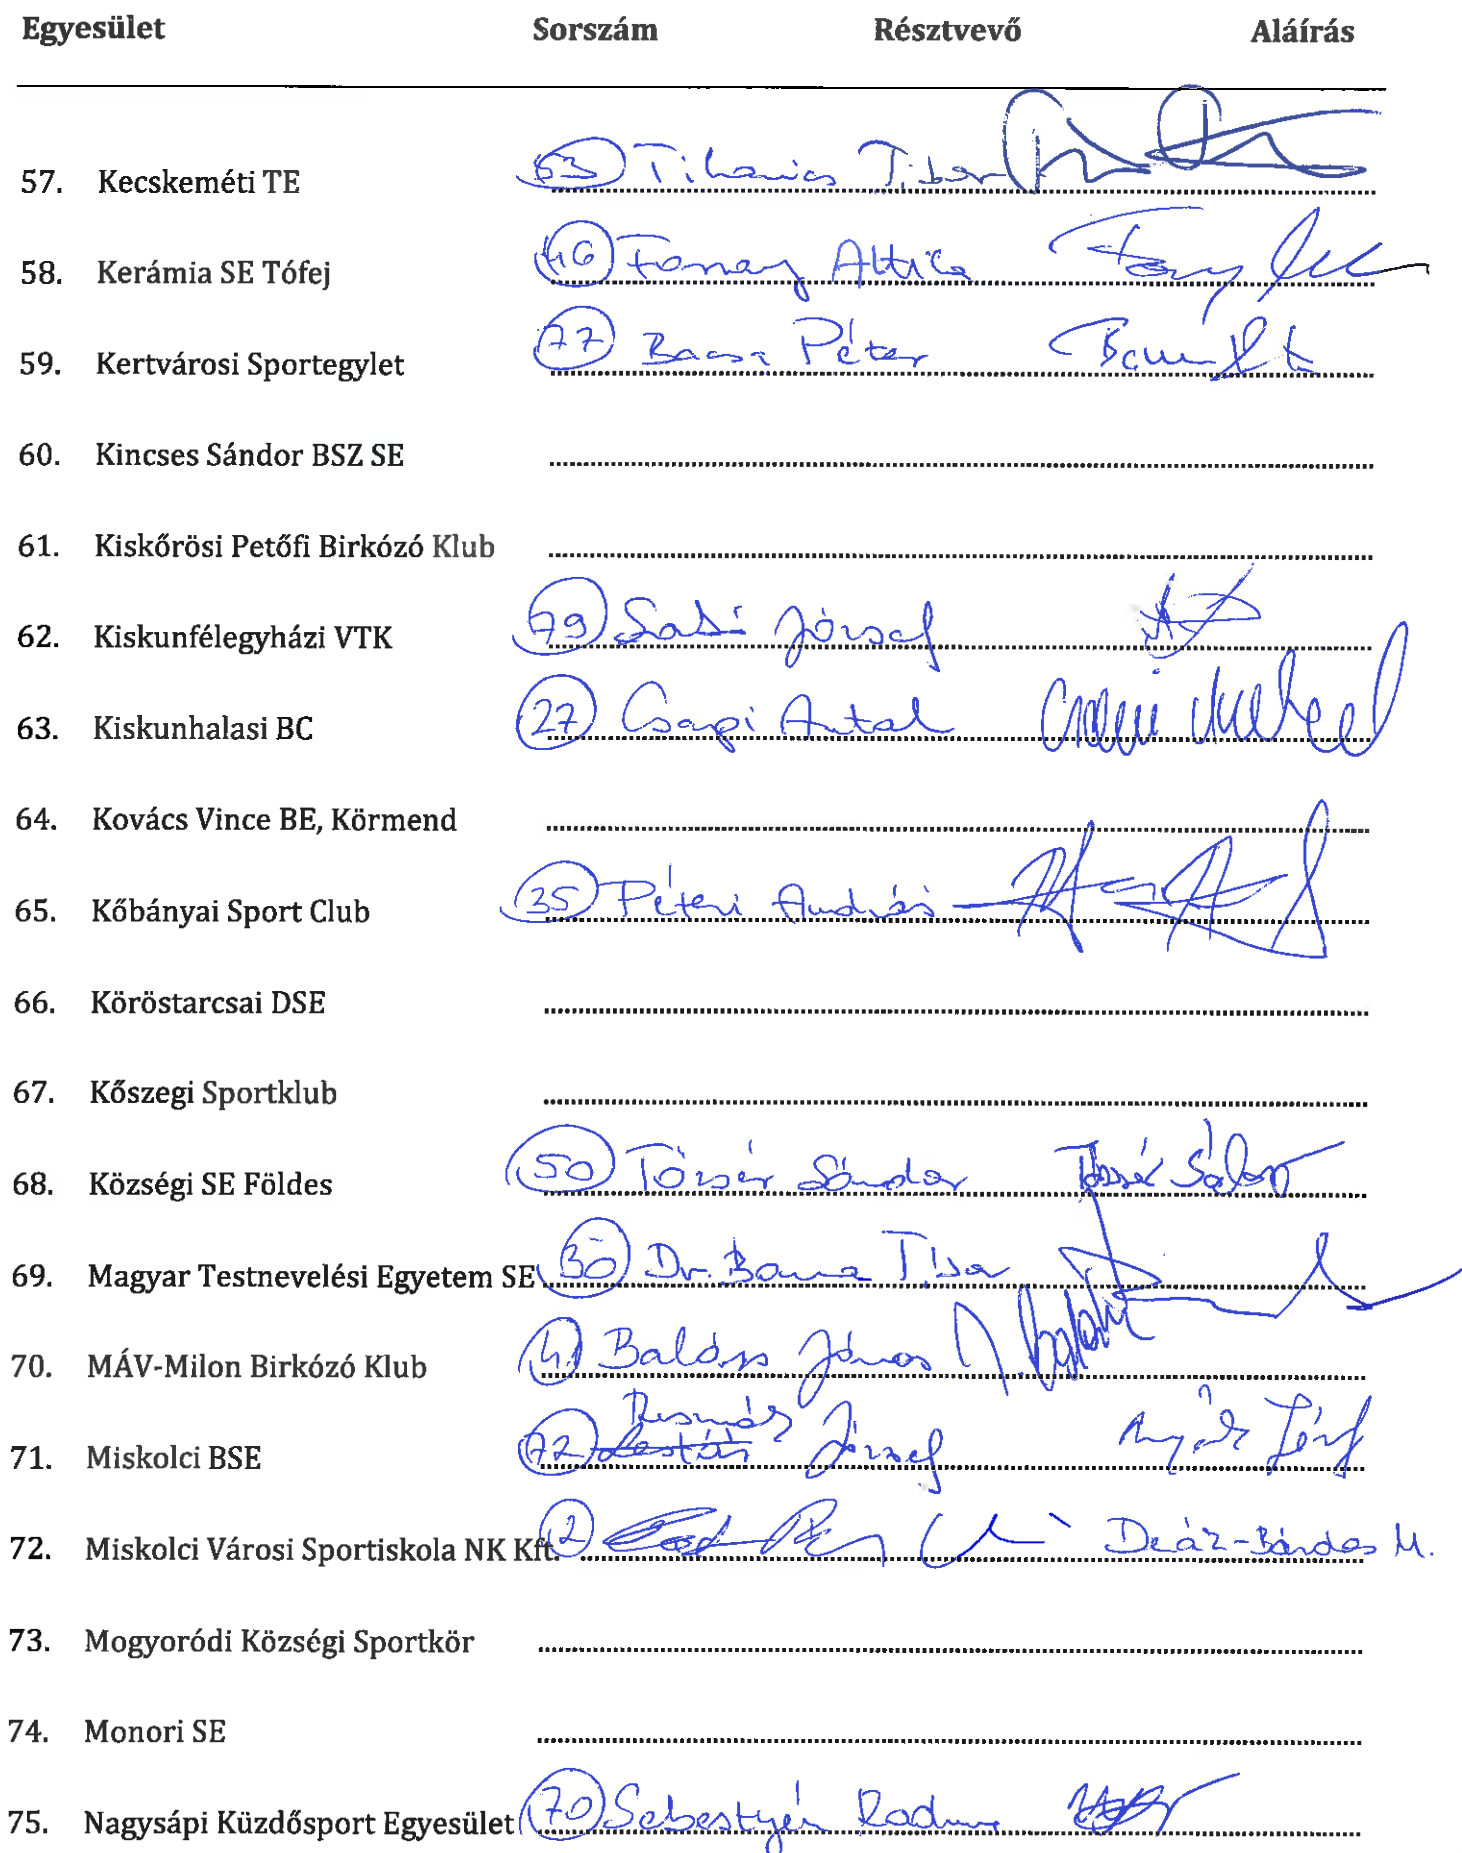 Egyesület Sorszám Résztvevő Aláírás
57. Kecskeméti TE 63 Tihanics Tibor
58. Kerámia SE Tófej 46 Attila
59. Kertvárosi Sportegylet 77 Bacsa Péter
60. Kincses Sándor BSZ SE
61. Kiskőrösi Petőfi Birkózó Klub
62. Kiskunfélegyházi VTK 79 József
63. Kiskunhalasi BC 27 Csapi Antal
64. Kovács Vince BE, Körmend
65. Kőbányai Sport Club 35 Péteri András
66. Köröstarcsai DSE
67. Kőszegi Sportklub
68. Községi SE Földes 50 Tőzsér Sándor
69. Magyar Testnevelési Egyetem SE 30 Dr. Tibor
70. MÁV-Milon Birkózó Klub 41 Balázs János
71. Miskolci BSE 72 József
72. Miskolci Városi Sportiskola NK Kft. 2 Deáz-Bárdos M.
73. Mogyoródi Községi Sportkör
74. Monori SE
75. Nagysápi Küzdősport Egyesület 70 Sebestyén